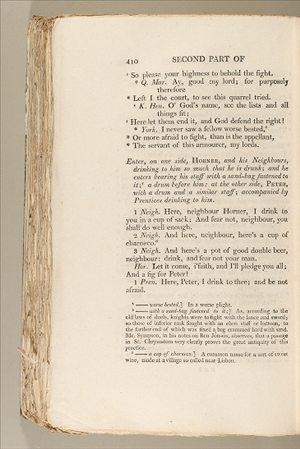 410 SECOND PART OF
' So please your highness to behold the fight.
* Q. Mar. Ay, good my lord; for purposely
therefore
* Left I the court, to see this quarrel tried.
' K. Hen. O' God's name, see the lists and all
things fit;
' Here let them end it, and God defend the right!
* York. I never saw a fellow worse bested,
* Or more afraid to fight, than is the appellant,
* The servant of this armourer, my lords.
Enter, on one side, HORNER, and his Neighbours,
drinking to him so much that he is drunk; and he
enters bearing his staff with a sand-bag fastened to
it; a drum before him: at the other side, PETER,
with a drum and a similar staff; accompanied by
Prentices drinking to him.
1 Neigh. Here, neighbour Horner, I drink to
you in a cup of sack; And fear not, neighbour, you
shall do well enough.
2 Neigh. And here, neighbour, here's a cup of
charneco.
3 Neigh. And here's a pot of good double beer,
neighbour: drink, and fear not your man.
Hor. Let it come, i'faith, and I'll pledge you all;
And a fig for Peter!
1 Pren. Here, Peter, I drink to thee; and be not
afraid.
— worse bested,] In a worse plight.
— with a sand-bag fastened to it;] As, according to the
old laws of duels, knights were to fight with the lance and sword;
so those of inferior rank fought with an ebon staff or batton, to
the farther end of which was fixed a bag crammed hard with sand.
Mr. Sympson, in his notes on Ben Jonson, observes, that a passage
in St. Chrysostom very clearly proves the great antiquity of this
practice.
— a cup of charneco.] A common name for a sort of sweet
wine, made at a village so called near Lisbon.